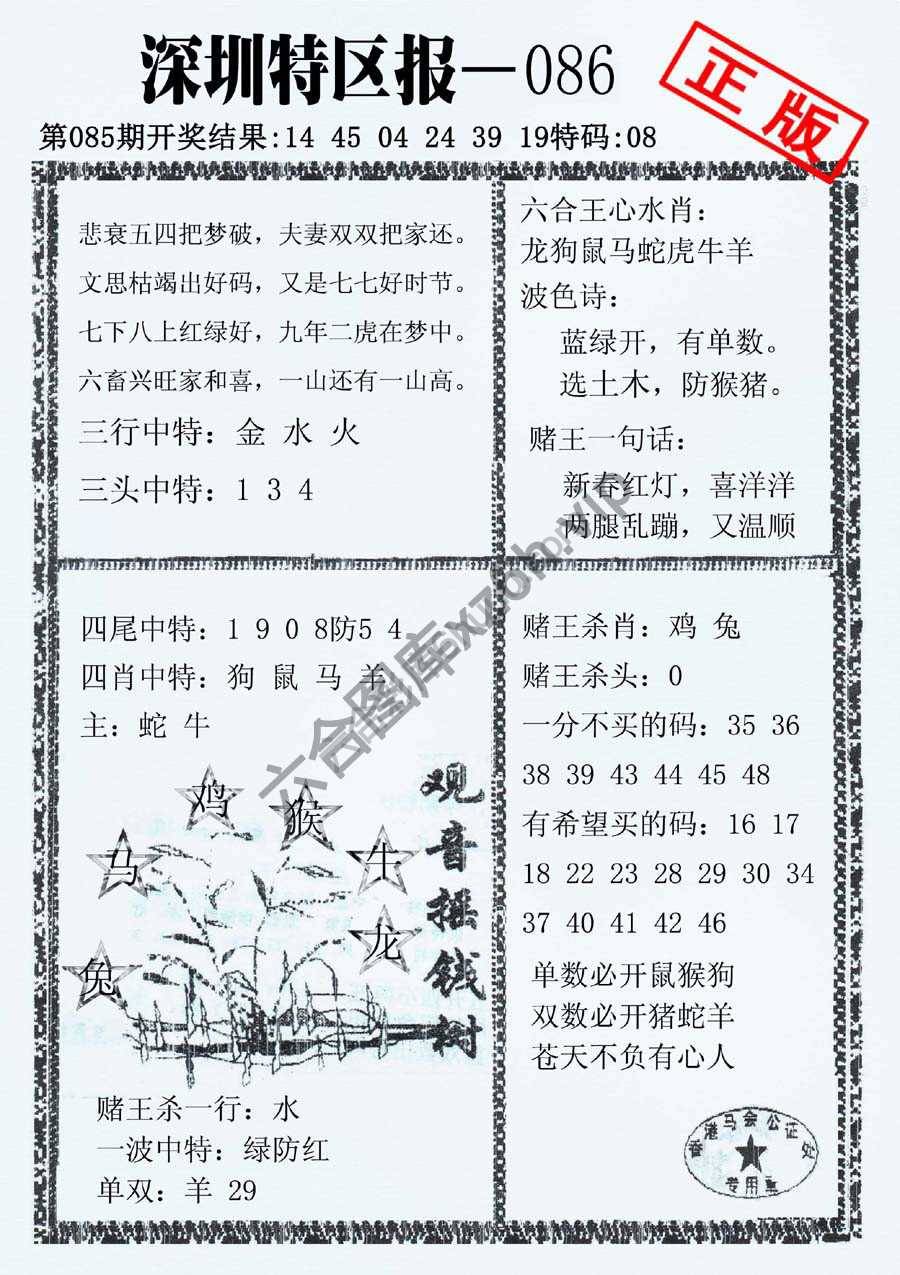 深圳特区报—086
正版
第085期开奖结果:14 45 04 24 39 19特码:08
悲衰五四把梦破，夫妻双双把家还。
文思枯竭出好码，又是七七好时节。
七下八上红绿好，九年二虎在梦中。
六畜兴旺家和喜，一山还有一山高。
三行中特：金 水 火
三头中特：1 3 4
六合王心水肖：
龙狗鼠马蛇虎牛羊
波色诗：
蓝绿开，有单数。
选土木，防猴猪。
赌王一句话：
新春红灯，喜洋洋
两腿乱蹦，又温顺
四尾中特：1 9 0 8防5 4
四肖中特：狗 鼠 马 羊
主：蛇 牛
鸡
猴
马
牛
龙
兔
观音摇钱树
赌王杀一行：水
一波中特：绿防红
单双：羊 29
赌王杀肖：鸡 兔
赌王杀头：0
一分不买的码：35 36
38 39 43 44 45 48
有希望买的码：16 17
18 22 23 28 29 30 34
37 40 41 42 46
单数必开鼠猴狗
双数必开猪蛇羊
苍天不负有心人
香港马会公证处
专用章
六合图库xzoh.vip